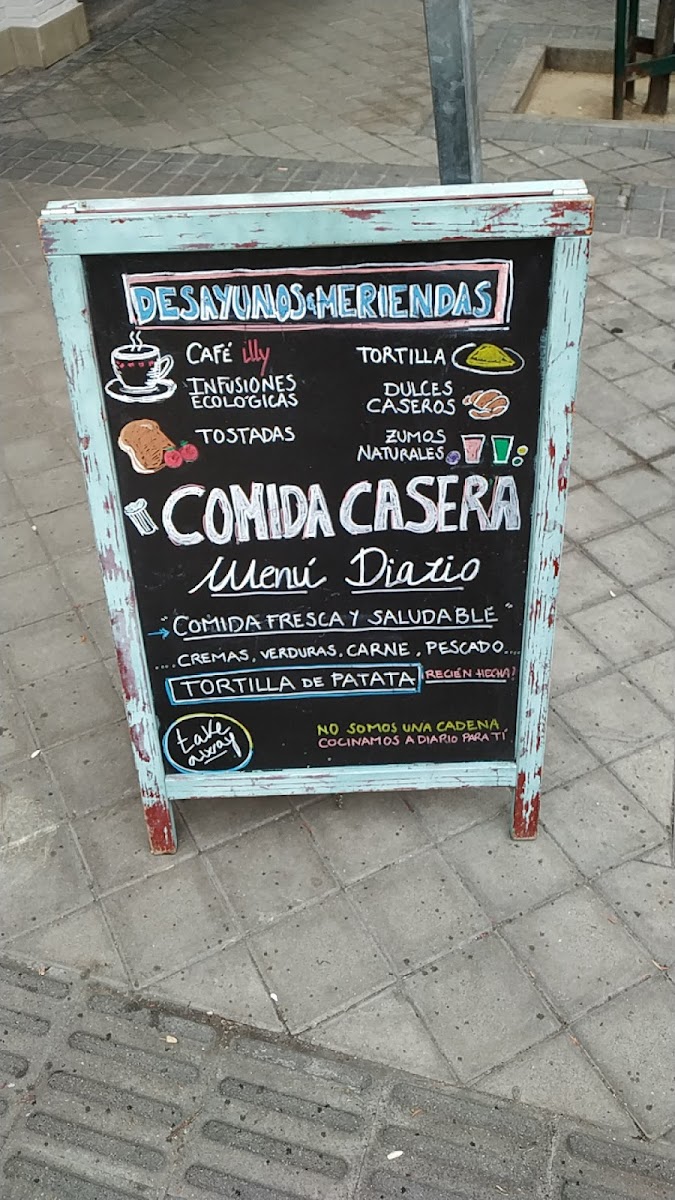 DESAYUNOS & MERIENDAS
CAFÉ illy
INFUSIONES
ECOLÓGICAS
TOSTADAS
TORTILLA
DULCES
CASEROS
ZUMOS
NATURALES
COMIDA CASERA
Menú Diario
"COMIDA FRESCA Y SALUDABLE"
....CREMAS, VERDURAS, CARNE, PESCADO....
TORTILLA DE PATATA ¡RECIÉN HECHA!
take
away
NO SOMOS UNA CADENA
COCINAMOS A DIARIO PARA TÍ